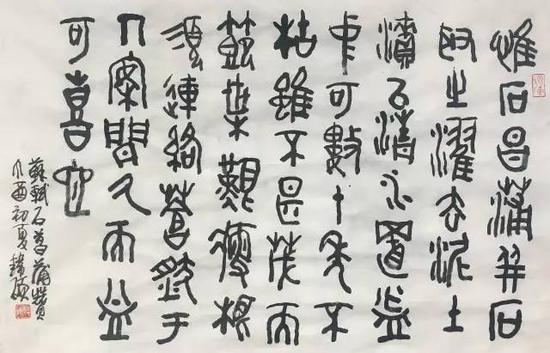 惟石昌蒲并石
取之濯去泥土
漬以清水置盆
中可數十年不
枯雖不甚茂而
節葉堅瘦根
須連絡蒼然于
几案間久而益
可喜也
蘇軾石菖蒲贊
酉初夏